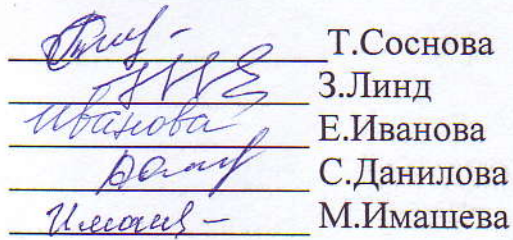 Т.Соснова
З.Линд
Иванова Е.Иванова
С.Данилова
М.Имашева